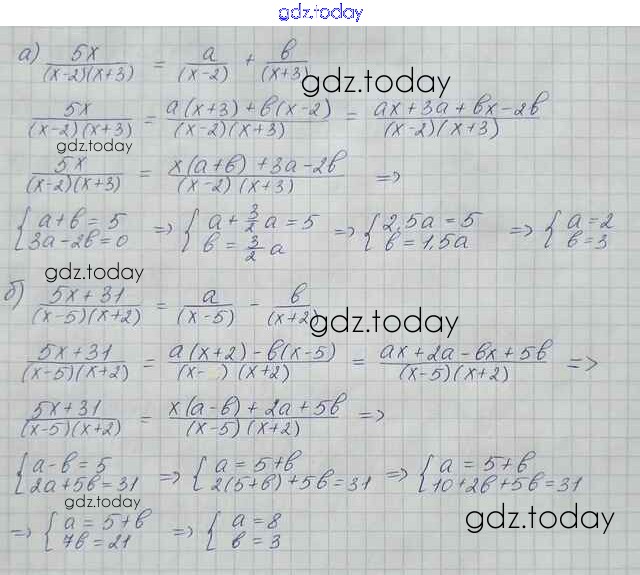 gdz.today
а) 5x/((x-2)(x+3)) = a/(x-2) + b/(x+3)
gdz.today
5x/((x-2)(x+3)) = (a(x+3)+b(x-2))/((x-2)(x+3)) = (ax+3a+bx-2b)/((x-2)(x+3))
gdz.today
5x/((x-2)(x+3)) = (x(a+b)+3a-2b)/((x-2)(x+3)) =>
{a+b=5; 3a-2b=0 => {a+3/2 a=5; b=3/2 a => {2,5a=5; b=1,5a => {a=2; b=3
gdz.today
б) (5x+31)/((x-5)(x+2)) = a/(x-5) - b/(x+2)
gdz.today
(5x+31)/((x-5)(x+2)) = (a(x+2)-b(x-5))/((x- )(x+2)) = (ax+2a-bx+5b)/((x-5)(x+2)) =>
(5x+31)/((x-5)(x+2)) = (x(a-b)+2a+5b)/((x-5)(x+2)) =>
{a-b=5; 2a+5b=31 => {a=5+b; 2(5+b)+5b=31 => {a=5+b; 10+2b+5b=31
gdz.today
=> {a=5+b; 7b=21 => {a=8; b=3
gdz.today